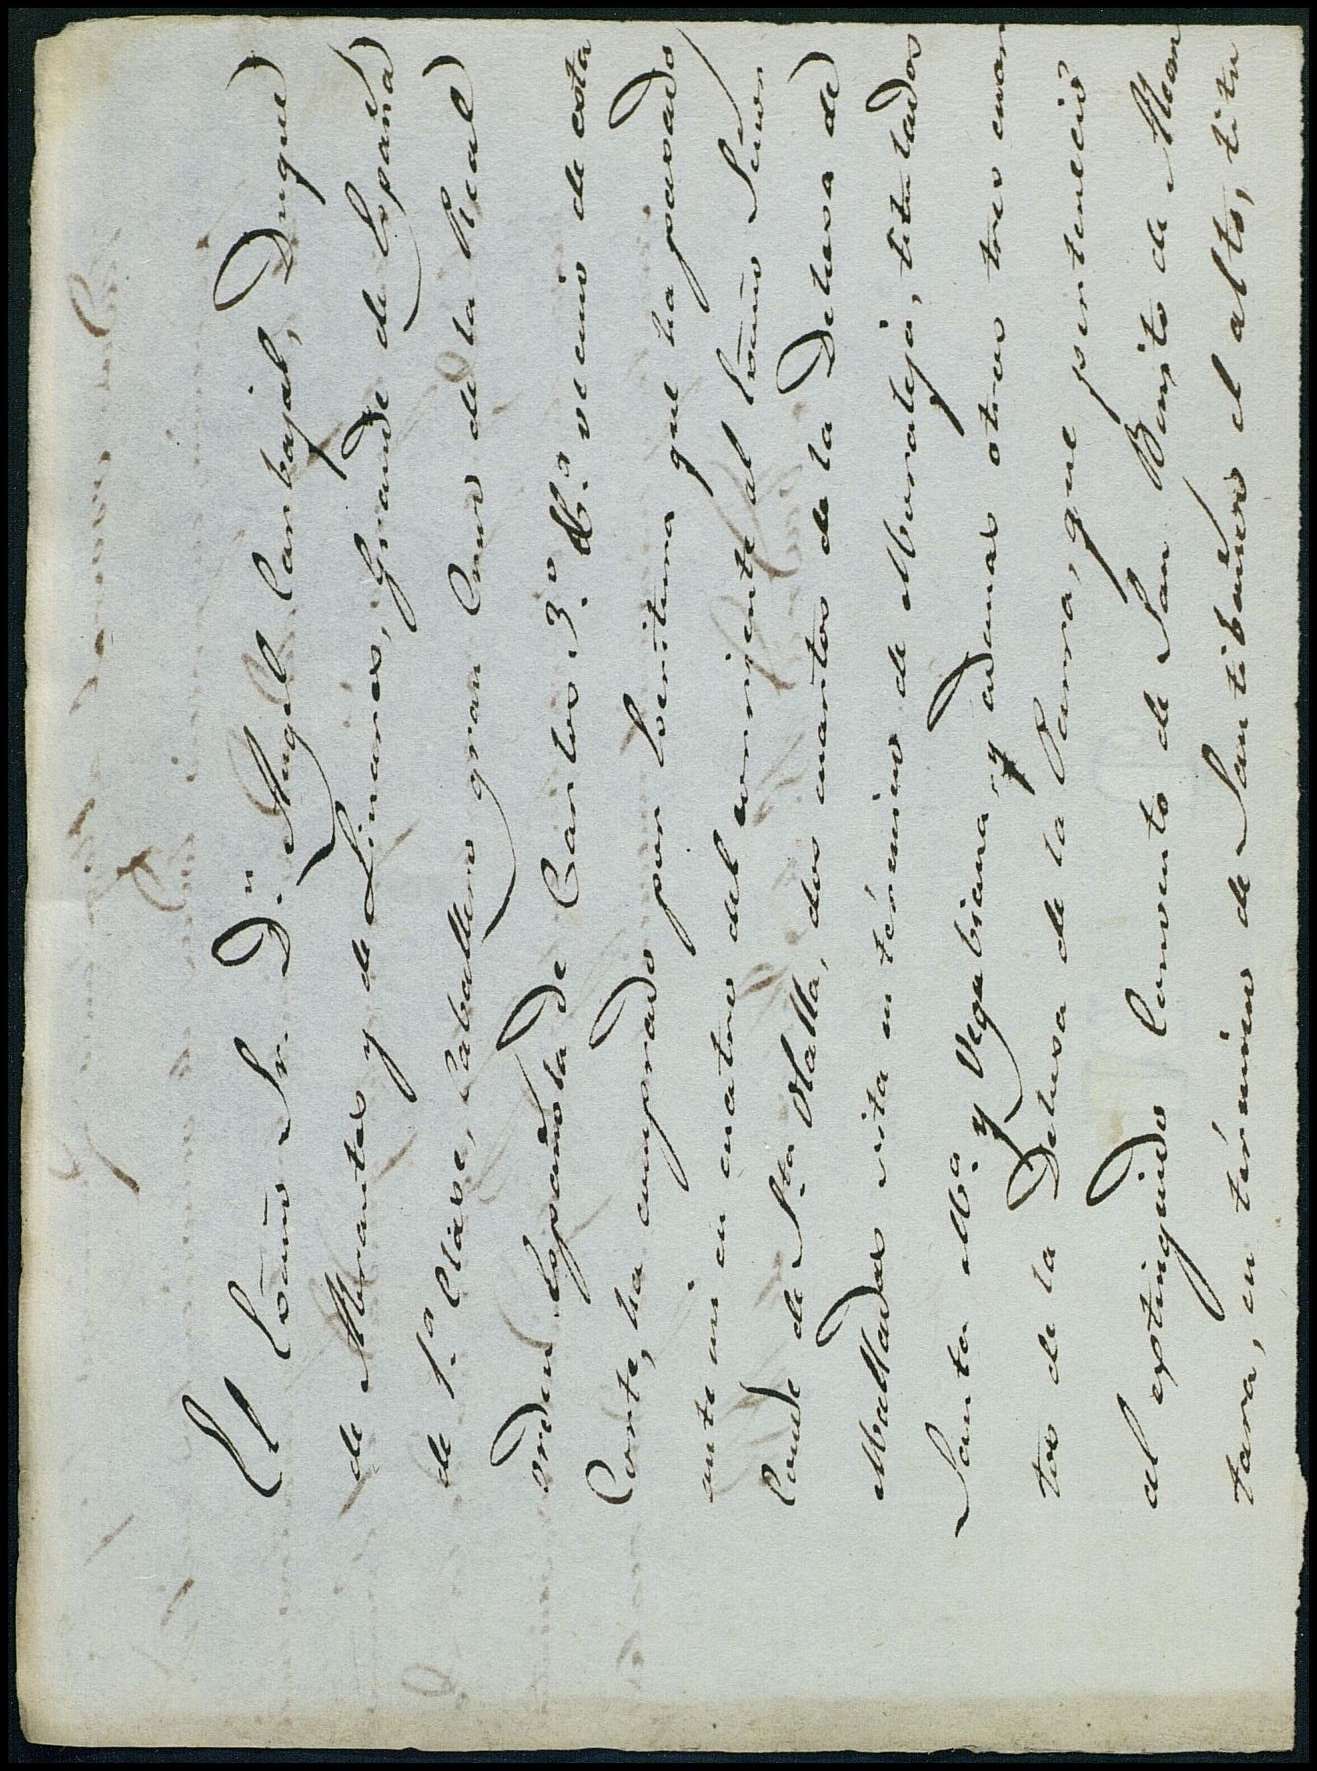 El Ecsmo Sr. Dn. Angel Carbajal, Duque
de Abrantes y de Linares, Grande de España
de 1.ª Clase, Caballero gran Cruz de la Real
orden Española de Carlos 3.º M.ª vecino de esta
Corte, ha comprado por Escritura que ha pasado
ante mi en cuatro del corriente al Ecsmo Señor
Conde de Sta. Olalla, dos cuartos de la Dehesa de
Malladas sita en término de Moraleja, titulados
Santa M.ª y Vegabiciana, y ademas otros tres cuar
tos de la Dehesa de la Parra, que perteneció
al extinguido Convento de San Benito de Alcan
tara, en término de Santibañes el alto, titu